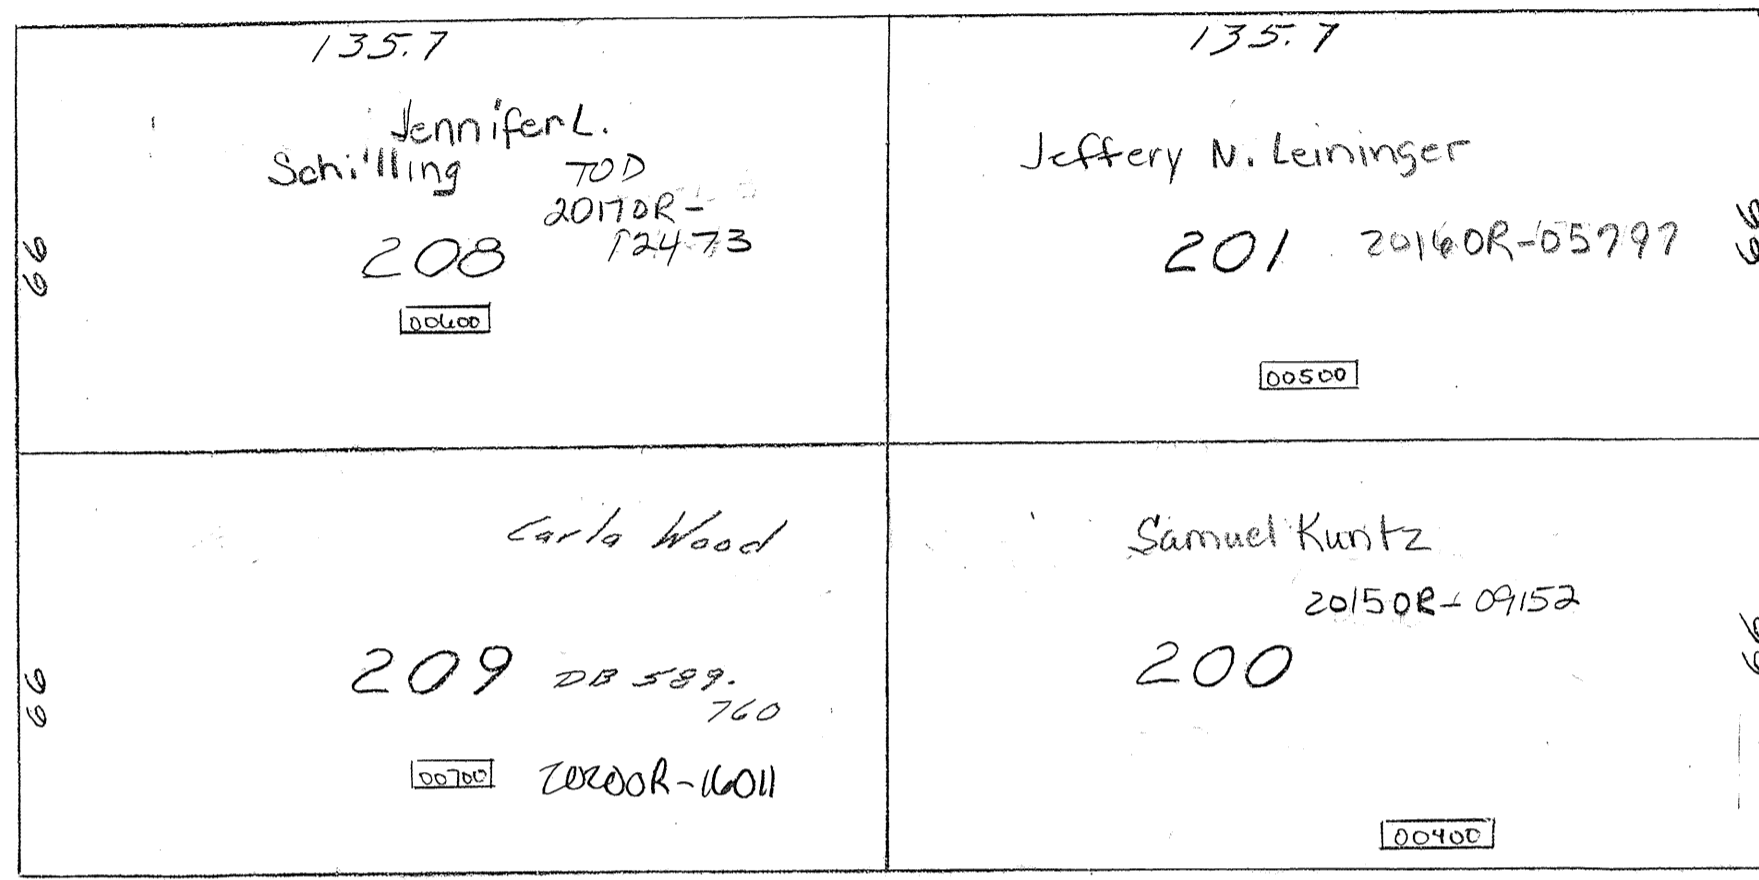 135.7
Jennifer L.
Schilling TOD
2017OR-
12473
66
208
00600
135.7
Jeffery N. Leininger
201 2016OR-05797
66
00500
Carla Wood
209 DB 589.
760
66
00700 2020OR-16011
Samuel Kuntz
2015OR-09152
200
66
00400